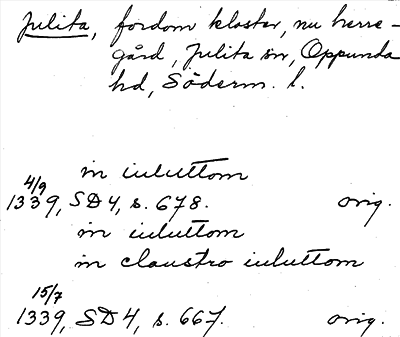 Julita, fordom kloster, nu herre-
gård, Julita sn, Oppunda
hd, Söderm. l.
in iuluttom
4/9
1339, SD 4, s. 678. orig.
in iuluttom
in claustro iuluttom
15/7
1339, SD 4, s. 667. orig.